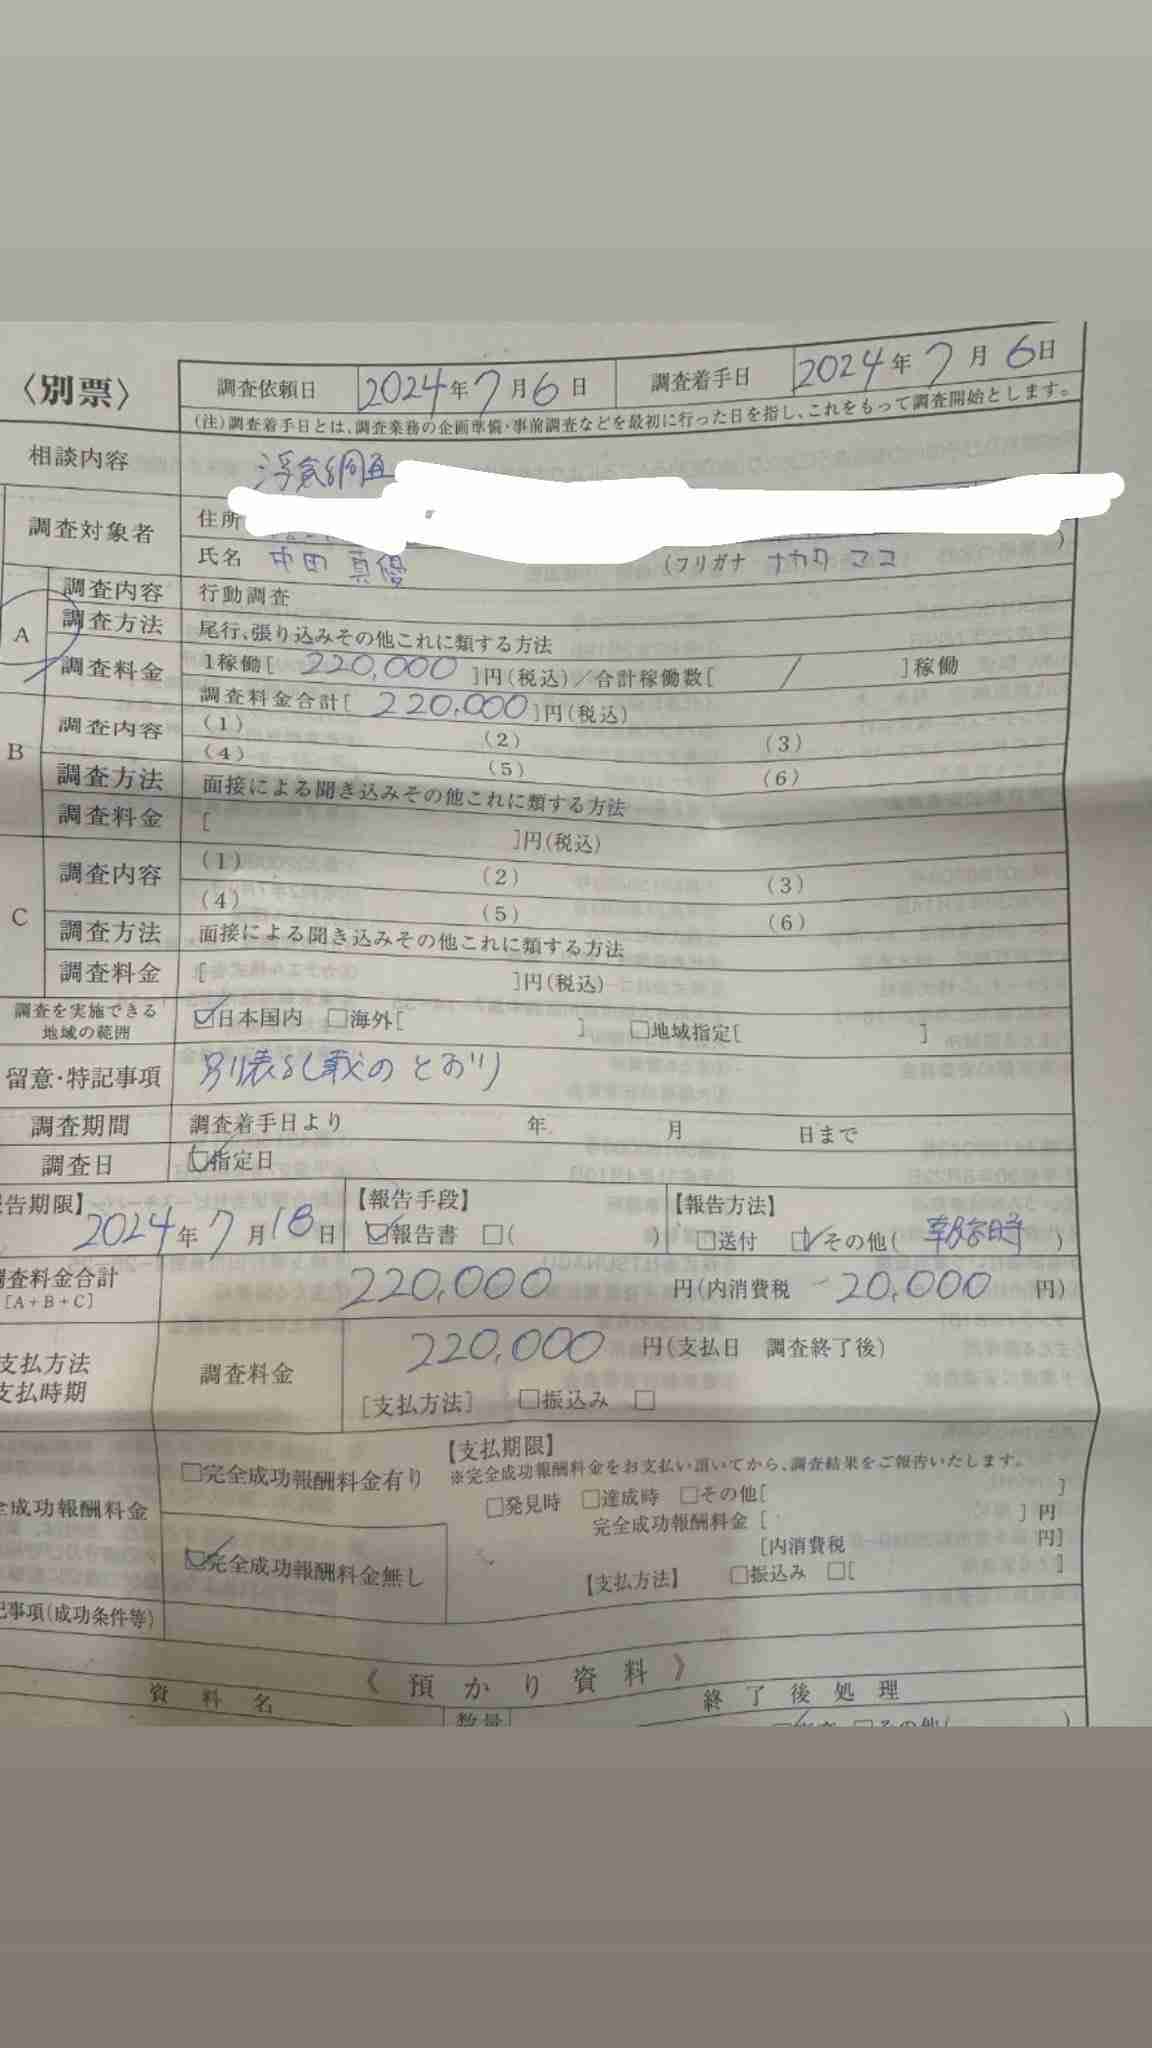 〈別票〉
調査依頼日 2024年7月6日 調査着手日 2024年7月6日
(注)調査着手日とは、調査業務の企画準備・事前調査などを最初に行った日を指し、これをもって調査開始とします。
相談内容 浮気調査
調査対象者 住所
氏名 中田 真優 (フリガナ ナカタ マユ )
A 調査内容 行動調査
調査方法 尾行、張り込みその他これに類する方法
調査料金 1稼働[ 220,000 ]円(税込)/合計稼働数[ / ]稼働
調査料金合計[ 220,000 ]円(税込)
B 調査内容 (1) (2) (3)
(4) (5) (6)
調査方法 面接による聞き込みその他これに類する方法
調査料金 [ ]円(税込)
C 調査内容 (1) (2) (3)
(4) (5) (6)
調査方法 面接による聞き込みその他これに類する方法
調査料金 [ ]円(税込)
調査を実施できる地域の範囲 ☑日本国内 □海外[ ] □地域指定[ ]
留意・特記事項 別表記載のとおり
調査期間 調査着手日より 年 月 日まで
調査日 ☑指定日
告期限】 2024年7月18日 【報告手段】 ☑報告書 □( ) 【報告方法】 □送付 ☑その他( )
調査料金合計 [A+B+C] 220,000 円(内消費税 20,000 円)
支払方法 支払時期 調査料金 220,000 円(支払日 調査終了後)
[支払方法] □振込み □
全成功報酬料金 □完全成功報酬料金有り 【支払期限】
※完全成功報酬料金をお支払い頂いてから、調査結果をご報告いたします。
□発見時 □達成時 □その他[ ]
完全成功報酬料金 [ ]円
[内消費税 円]
☑完全成功報酬料金無し 【支払方法】 □振込み □[ ]
記事項(成功条件等)
《 預かり資料 》
資料名 数量 終了後処理
□その他( )